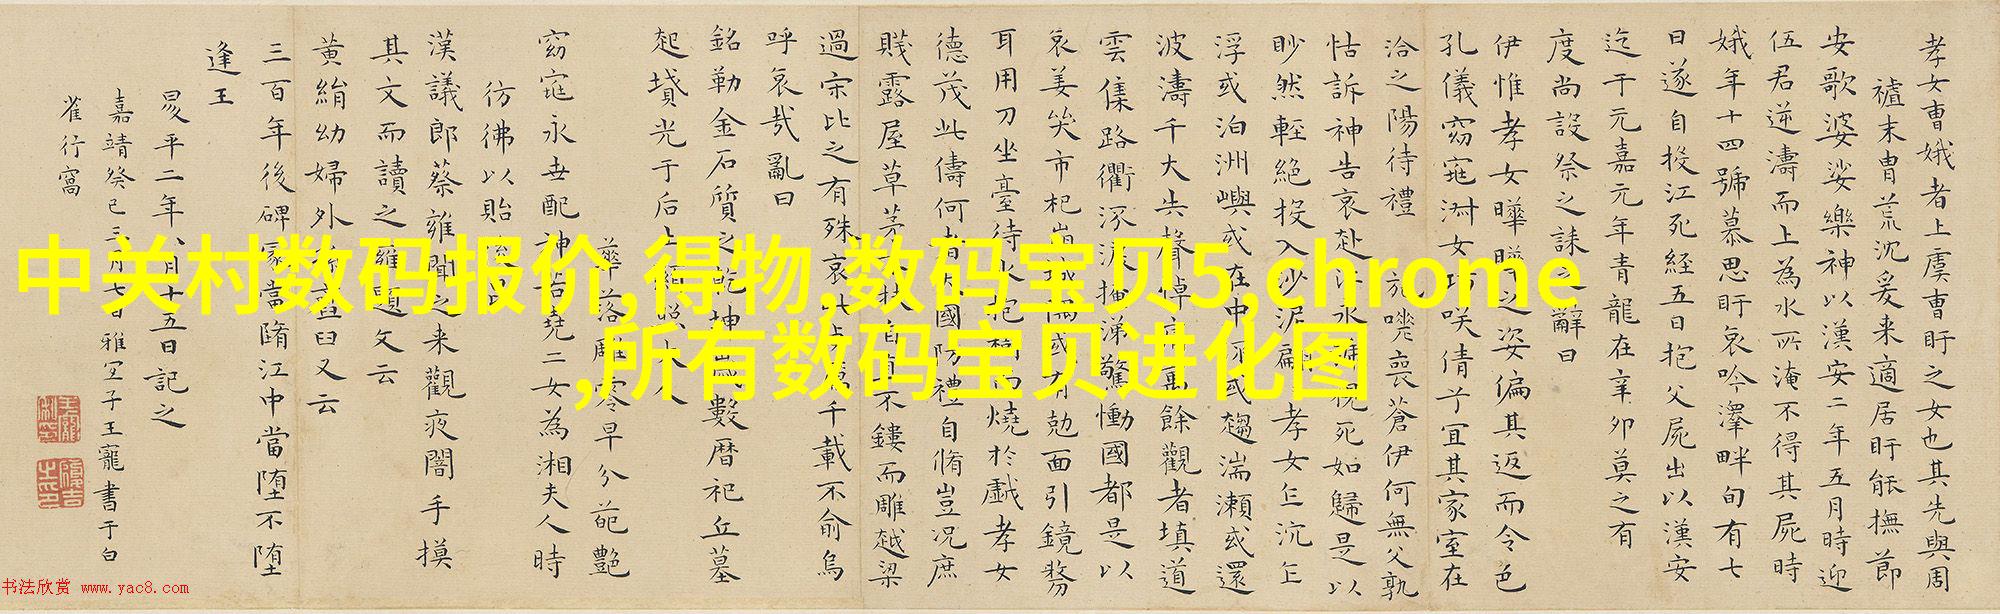 孝女曹娥者上虞曹盱之女也其先與周
禇末胄荒沈爰来適居盱能撫節
安歌婆娑樂神以漢安二年五月時迎
伍君逆濤而上為水所淹不得其屍時
娥年十四號慕思盱哀吟澤畔旬有七
日遂自投江死經五日抱父屍出以漢安
迄于元嘉元年青龍在辛卯莫之有
度尚設祭之誄之辭曰
伊惟孝女曄曄之姿偏其返而令色
孔儀窈窕淑女巧咲倩兮宜其家室在
洽之陽待禮 施嗟喪蒼伊何無父孰
怙訴神告哀赴江永號視死如歸是以
眇然輕絕投入沙泥翩 孝女乍沉乍
浮或泊洲嶼或在中 或趨湍瀬或還
波濤千大失聲悼 餘觀者填道
雲集路衢泺淚掩涕驚慟國都是以
哀姜哭市杞崩城隅或有尅面引鏡剺
耳用刀坐臺待水抱 而燒於戯孝女
德茂此儔何者大國防禮自脩豈况庶
賤露屋草茅 不鏤而雕越梁
過宋比之有殊哀 千載不俞烏
呼哀哉亂曰
銘勒金石質之乾坤 歲數曆祀丘墓
起墳光于后土 人
華落雕零早分葩艶
窈窕永世配神若堯二女為湘夫人時
彷彿以貽後
漢議郎蔡雍聞之来觀夜闇手摸
其文而讀之雍題文云
黃絹幼婦外 齏臼又云
三百年後碑冢當墮江中當堕不堕
逢王
昇平二年八月十五日記之
嘉靖癸巳三月七日雅宜子王寵書于白
雀行窩
中关村数码报价,得物,数码宝贝5,chrome
,所有数码宝贝进化图
书法欣赏 www.yac8.com